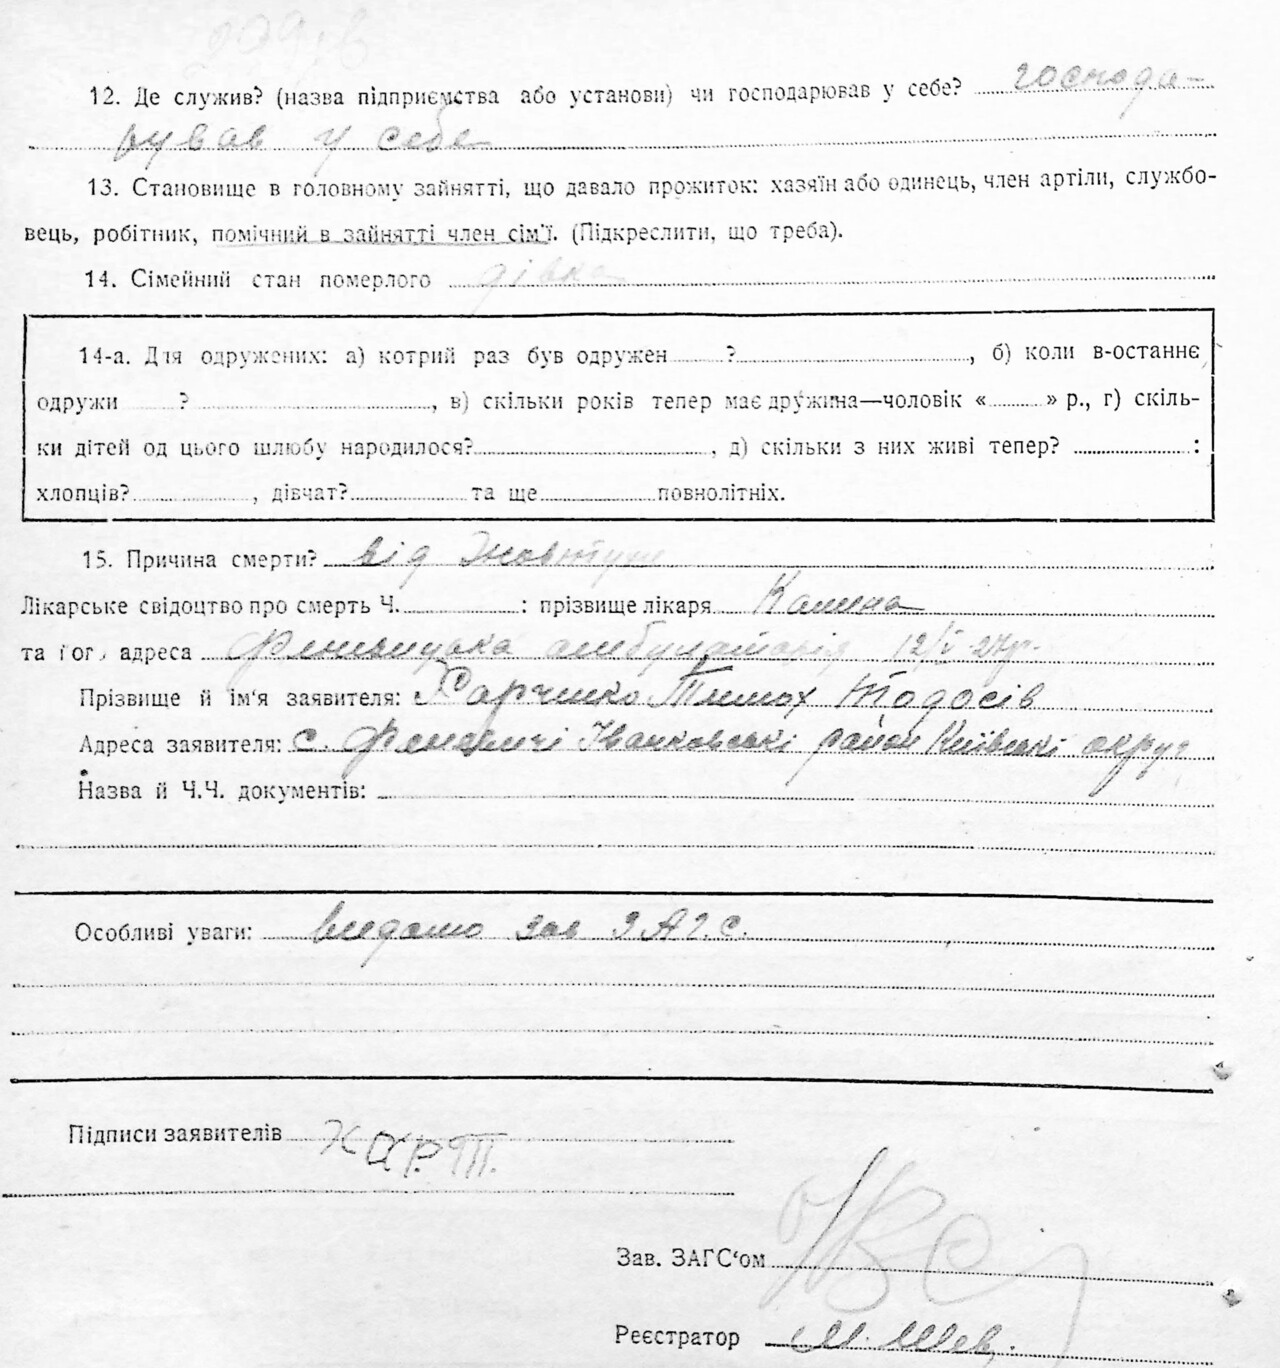 12. Де служив? (назва підприємства або установи) чи господарював у себе? господа-
рував у себе
13. Становище в головному зайнятті, що давало прожиток: хазяїн або одинець, член артіли, службо-
вець, робітник, помічний в зайнятті член сім'ї. (Підкреслити, що треба).
14. Сімейний стан померлого дівка
14-а. Для одружених: а) котрий раз був одружен ? , б) коли в-останнє
одружи ? , в) скільки років тепер має дружина—чоловік « » р., г) скіль-
ки дітей од цього шлюбу народилося? , д) скільки з них живі тепер? :
хлопців? , дівчат? та ще повнолітніх.
15. Причина смерти? від
Лікарське свідоцтво про смерть Ч. : прізвище лікаря Калина
та його адреса амбулаторія 12/І 27р.
Прізвище й ім'я заявителя: Харчинко Тимох Тодосів
Адреса заявителя: с. Феневичі Іванковські район Київські округ
Назва й Ч.Ч. документів:
Особливі уваги: видано зав ЗАГ.С.
Підписи заявителів ХАР.ТП.
Зав. ЗАГС'ом
Реєстратор М. Шев.